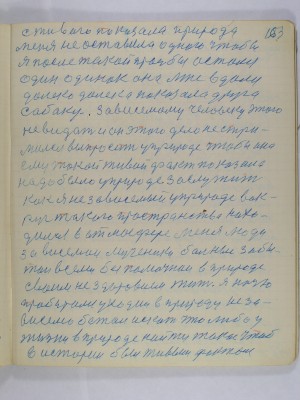 с живого показала природа
меня не оставила одного чтобы
я после такой просьбы остался
один одинок она мне вдали
далеко далеко показала друга
собаку. Зависимому человеку этого
не видат и он этого дела не стре-
мился выпросить у природе чтобы она
ему такой живой факт показала
надо было у природе заслужит
как я независимый у природе вок-
руг такого пространства нахо-
дился в атмосфере меня люди
зависимые мученики больные забы-
тые всеми беспомочные в природе
своим нездоровием жит. я по
пробираю уходил в природу неза-
висемо болел искат что либо у
жизни в природе найти такое чтоб
в истории были живым фактом